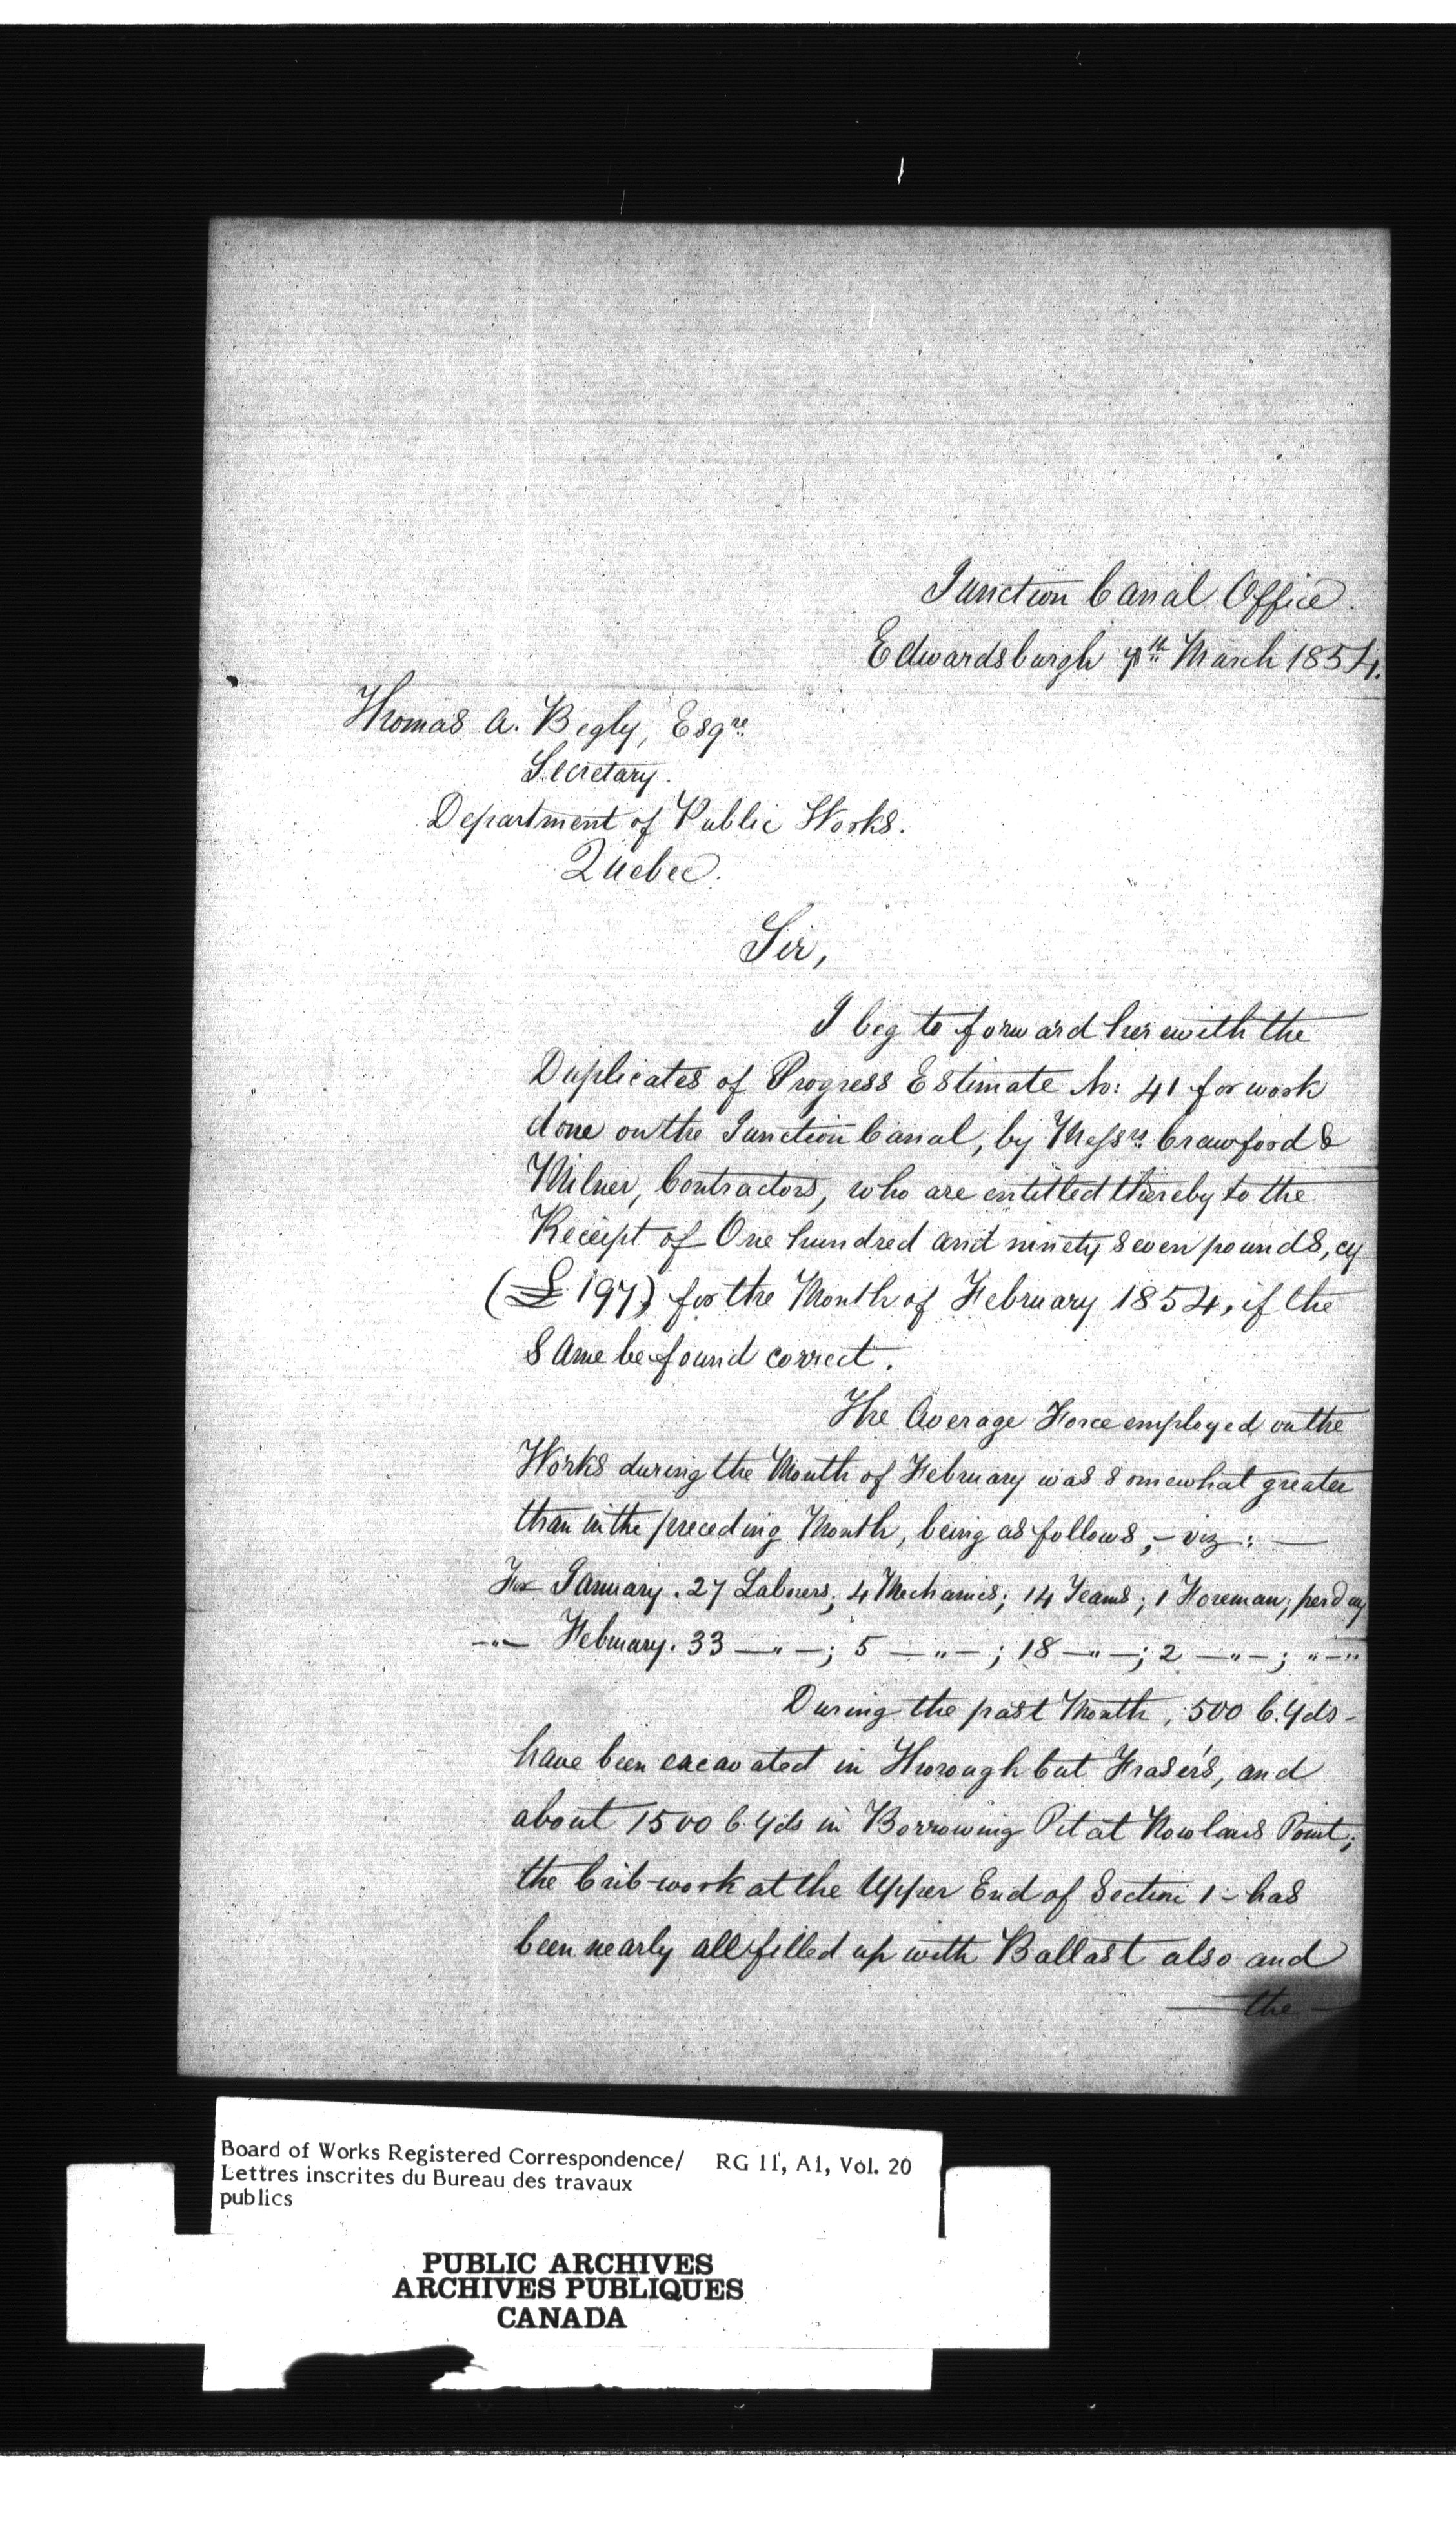 Junction Canal Office.
Edwardsburgh 7th March 1854.
Thomas A. Begly, Esqre
Secretary.
Department of Public Works.
Quebec.
Sir,
I beg to forward herewith the
Duplicates of Progress Estimate No: 41 for work
done on the Junction Canal, by Messrs Crawford &
Milner, Contractors, who are entitled thereby to the
Receipt of One hundred and ninety seven pounds, cy
(£ 197) for the Month of February 1854, if the
same be found correct.
The Average Force employed on the
Works during the Month of February was somewhat greater
than in the preceding Month, being as follows, - viz: —
For January. 27 Laborers; 4 Mechanics; 14 Teams; 1 Foreman; per day
-"- February. 33 —"—; 5 —"—; 18 —"—; 2 —"—; "—"
During the past Month, 500 C. Yds -
have been excavated in Thorough Cut Fraser's, and
about 1500 C. Yds in Borrowing Pit at Nowlans Point;
the Crib-work at the Upper End of Section 1 - has
been nearly all filled up with Ballast also and
— the —
Board of Works Registered Correspondence/ RG 11, A1, Vol. 20
Lettres inscrites du Bureau des travaux
publics
PUBLIC ARCHIVES
ARCHIVES PUBLIQUES
CANADA